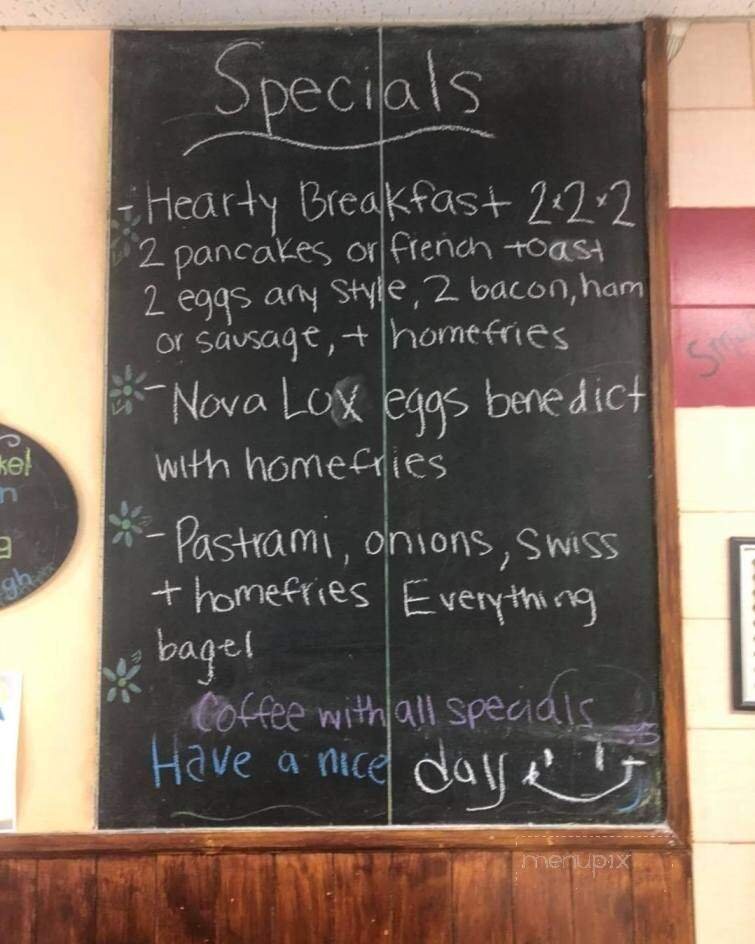 Specials
- Hearty Breakfast 2x2x2
2 pancakes or french toast
2 eggs any style, 2 bacon, ham
or sausage, + homefries
- Nova Lox eggs benedict
with homefries
- Pastrami, onions, swiss
+ homefries Everything
bagel
Coffee with all specials
Have a nice day
menupix